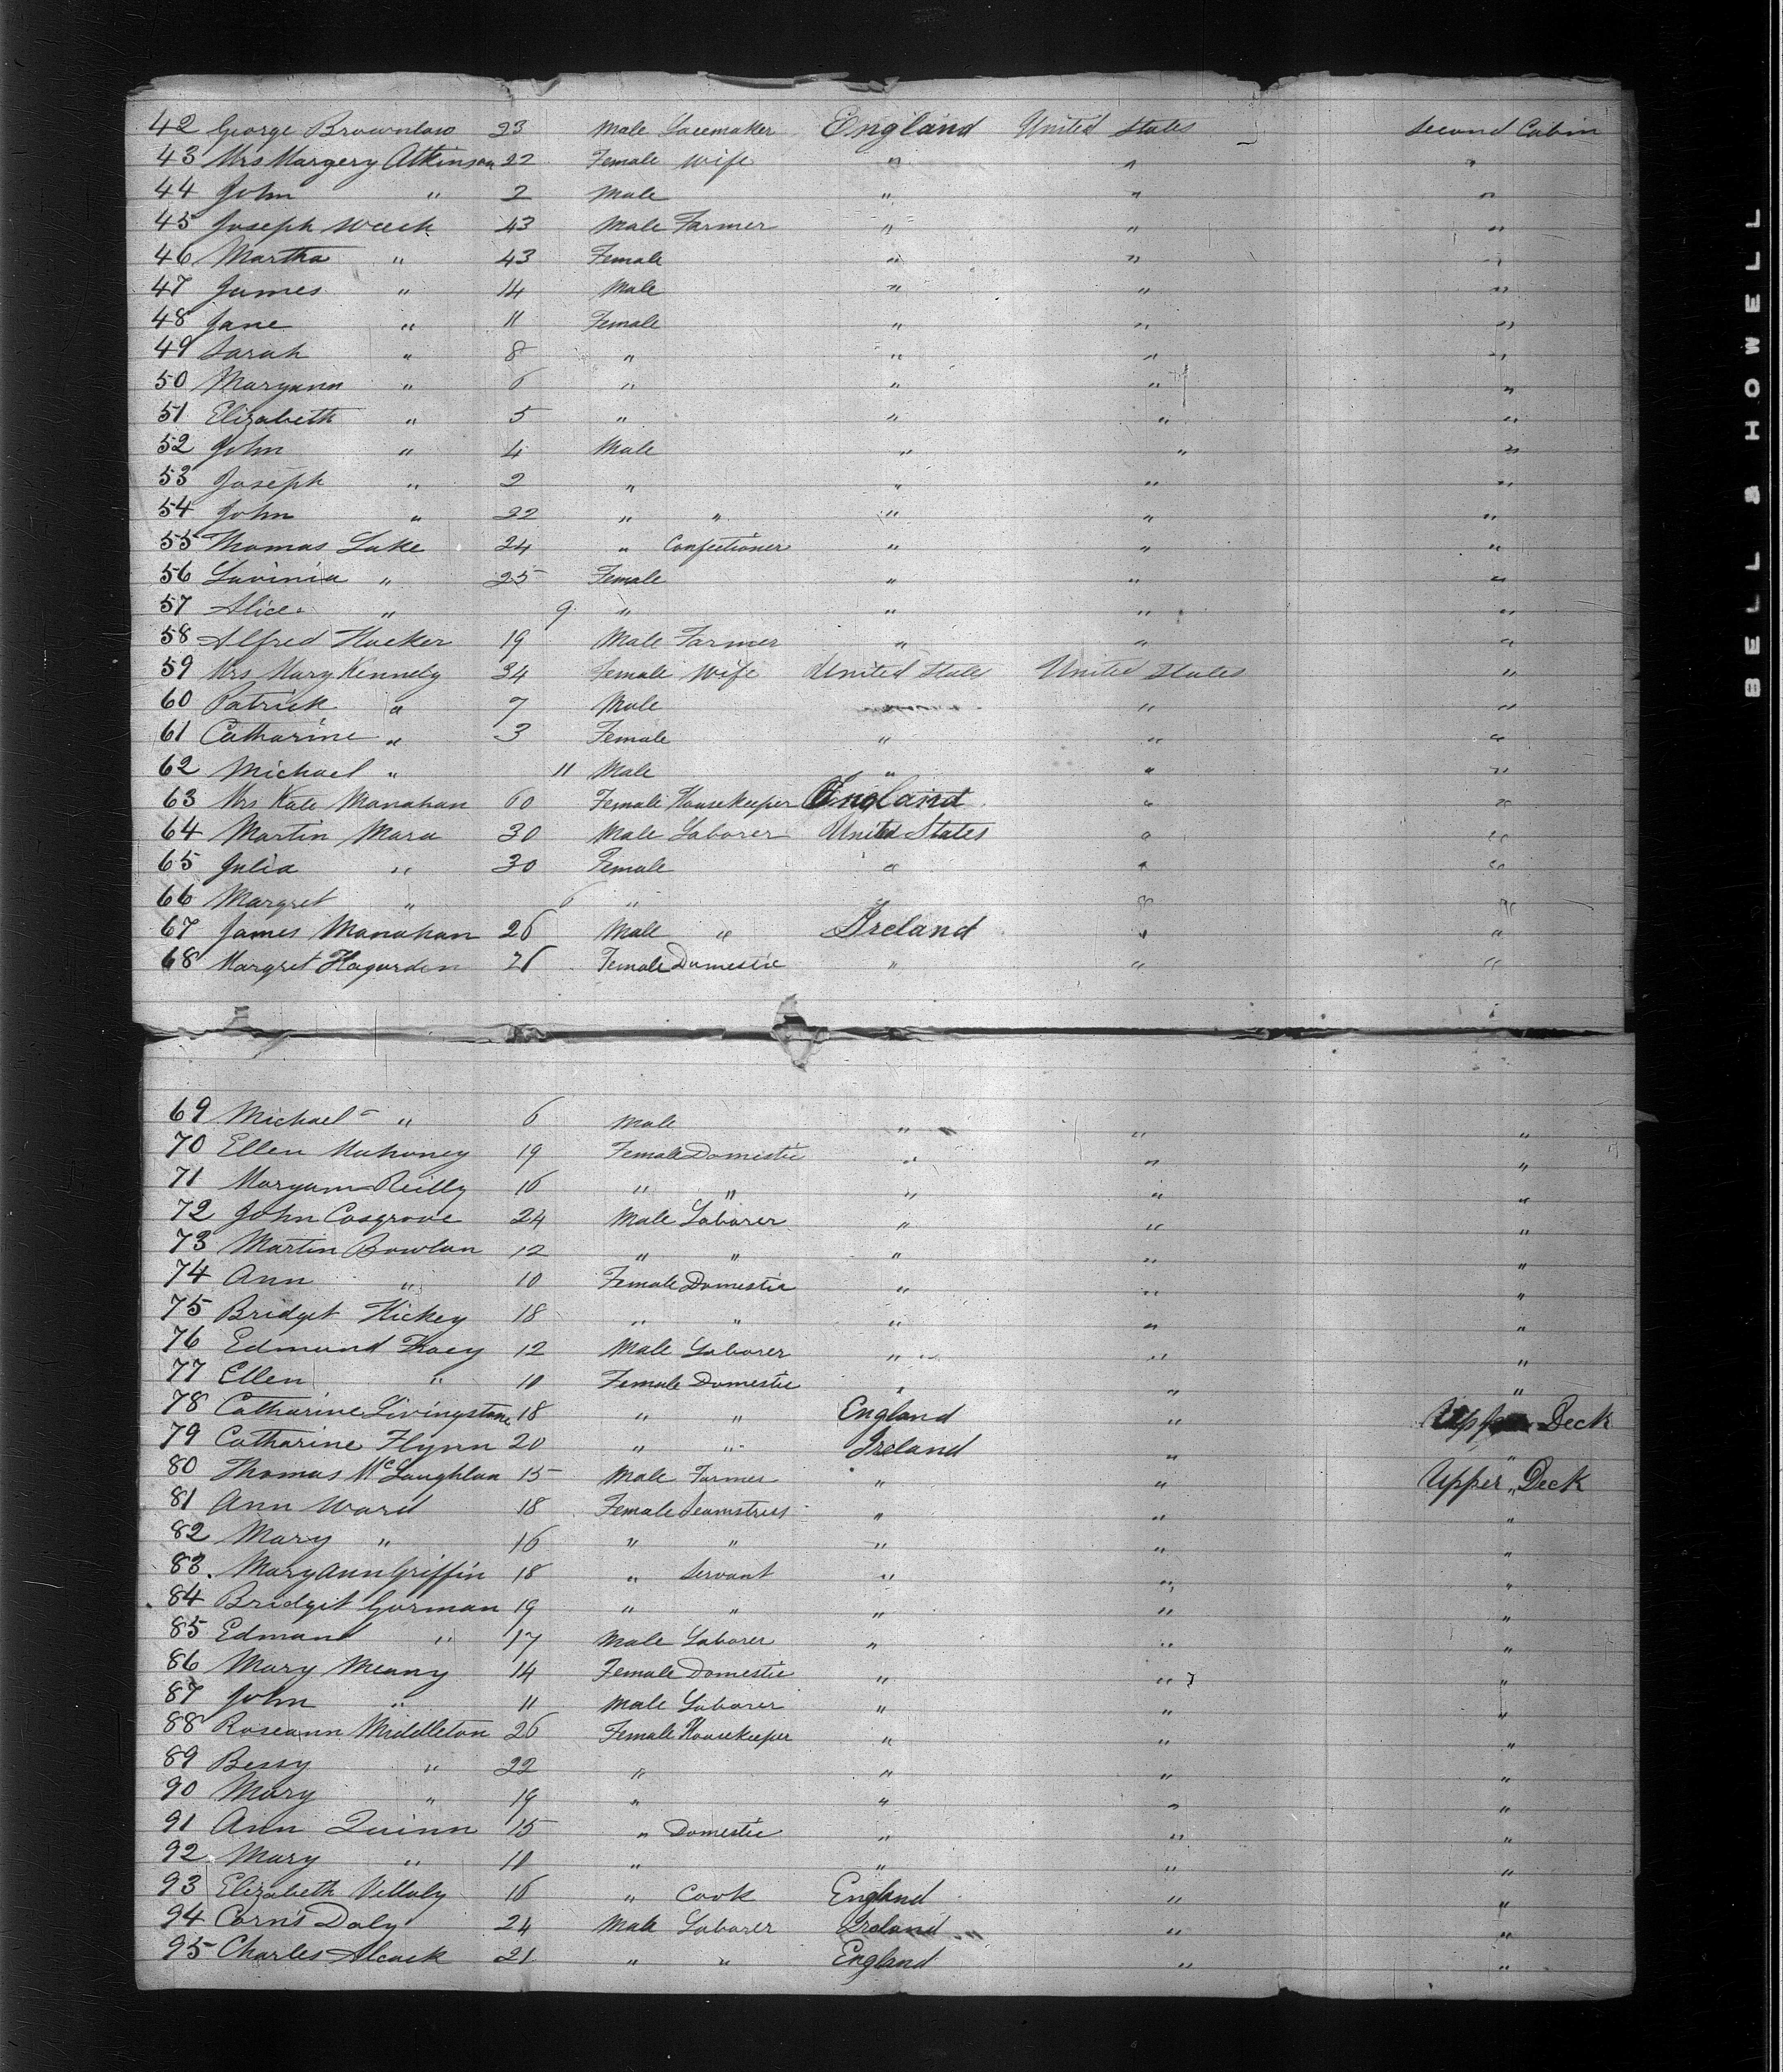 42 George Brownlow 23 Male Lacemaker England United States Second Cabin
43 Mrs Margery Atkinson 22 Female Wife " " "
44 John " 2 Male " " "
45 Joseph Week 43 Male Farmer " " "
46 Martha " 43 Female " " "
47 James " 14 Male " " "
48 Jane " 11 Female " " "
49 Sarah " 8 " " " "
50 Maryann " 6 " " " "
51 Elizabeth " 5 " " " "
52 John " 4 Male " " "
53 Joseph " 2 " " " "
54 John " 22 " " " " "
55 Thomas Lake 24 " Confectioner " " "
56 Lavinia " 25 Female " " "
57 Alice " 9 " " " "
58 Alfred Hocker 19 Male Farmer " " "
59 Mrs Mary Kennedy 34 Female Wife United States United States "
60 Patrick " 7 Male " "
61 Catharine " 3 Female " " "
62 Michael " 11 Male " " "
63 Mrs Kate Manahan 60 Female Housekeeper England " "
64 Martin Mara 30 Male Laborer United States " "
65 Julia " 30 Female " " "
66 Margret " 6 " " " "
67 James Manahan 26 Male " Ireland " "
68 Margret Hagarden 26 Female Domestic " " "
69 Michael " 6 Male " " "
70 Ellen Mahoney 19 Female Domestic " " "
71 Maryann Reilly 16 " " " " "
72 John Cosgrove 24 Male Laborer " " "
73 Martin Bowlan 12 " " " " "
74 Ann " 10 Female Domestic " " "
75 Bridget Hickey 18 " " " " "
76 Edmund 12 Male Laborer " " "
77 Ellen " 10 Female Domestic " " "
78 Catharine Livingstone 18 " " England " Upper Deck
79 Catharine Flynn 20 " " Ireland " "
80 Thomas McLaughlan 15 Male Farmer " " Upper Deck
81 Ann Ward 18 Female Seamstress " " "
82 Mary " 16 " " " " "
83 Mary Ann Griffin 18 " Servant " " "
84 Bridgit Gorman 19 " " " " "
85 Edmund " 17 Male Laborer " " "
86 Mary Meany 14 Female Domestic " " "
87 John " 11 Male Laborer " " "
88 Roseann Middleton 26 Female Housekeeper " " "
89 Bessy " 22 " " " "
90 Mary " 19 " " " "
91 Ann Quinn 15 " Domestic " " "
92 Mary " 10 " " " "
93 Elizabeth 16 " Cook England " "
94 Corns Daly 24 Male Laborer Ireland " "
95 Charles Alcock 21 " " England " "
BELL & HOWELL